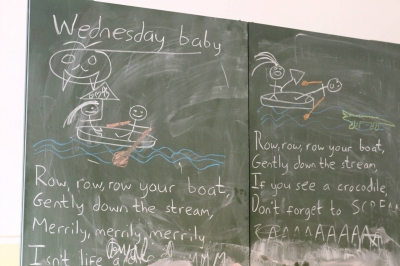 Wednesday baby
Row, row, row your boat,
Gently down the stream,
Merrily, merrily, merrily
Isn't life a
Row, row, row your boat,
Gently down the stream,
If you see a crocodile,
Don't forget to SCREA